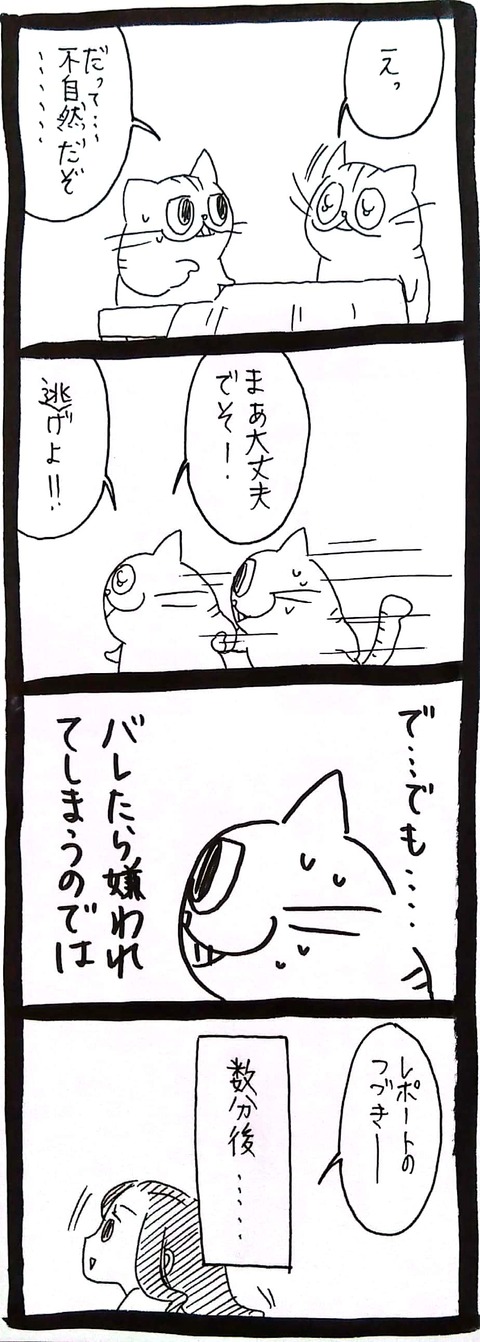 えっ
だって…
不自然だぞ
……
まあ大丈夫
でそー!
逃げよ!!
で…でも……
バレたら嫌われ
てしまうのでは
レポートの
つづきー
数分後……